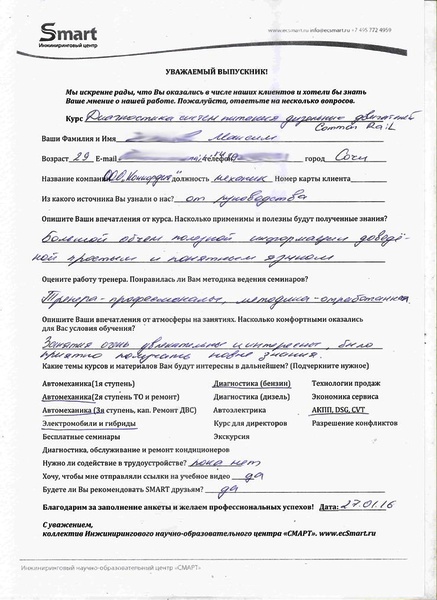 Smart
Инжиниринговый центр
www.ecsmart.ru info@ecsmart.ru +7 495 772 4959
УВАЖАЕМЫЙ ВЫПУСКНИК!
Мы искренне рады, что Вы оказались в числе наших клиентов и хотели бы знать
Ваше мнение о нашей работе. Пожалуйста, ответьте на несколько вопросов.
Курс Диагностика систем питания дизельных двигателей
Common Rail
Ваши Фамилия и Имя Максим
Возраст 29 E-mail телефон город Сочи
Название компании ООО "Конкорд" должность механик Номер карты клиента
Из какого источника Вы узнали о нас? от руководства
Опишите Ваши впечатления от курса. Насколько применимы и полезны будут полученные знания?
Большой объем полезной информации доведё-
ной простым и понятным языком
Оцените работу тренера. Понравилась ли Вам методика ведения семинаров?
Тренера - профессионалы, методика - отработанная
Опишите Ваши впечатления от атмосферы на занятиях. Насколько комфортными оказались
для Вас условия обучения?
Занятия очень увлекательны и интересны, было
приятно получать новые знания.
Какие темы курсов и материалов Вам будут интересны в дальнейшем? (Подчеркните нужное)
Автомеханика(1я ступень) Диагностика (бензин) Технологии продаж
Автомеханика(2я ступень ТО и ремонт) Диагностика (дизель) Экономика сервиса
Автомеханика (3я ступень, кап. Ремонт ДВС) Автоэлектрика АКПП, DSG, CVT
Электромобили и гибриды Курс для директоров Разрешение конфликтов
Бесплатные семинары Экскурсия
Диагностика, обслуживание и ремонт кондиционеров
Нужно ли содействие в трудоустройстве? пока нет
Хочу, чтобы мне отправляли ссылки на учебное видео да
Будете ли Вы рекомендовать SMART друзьям? да
Благодарим за заполнение анкеты и желаем профессиональных успехов! Дата: 27.01.16
С уважением,
коллектив Инжинирингового научно-образовательного центра «СМАРТ». www.ecSmart.ru
Инжиниринговый научно-образовательный центр «СМАРТ»